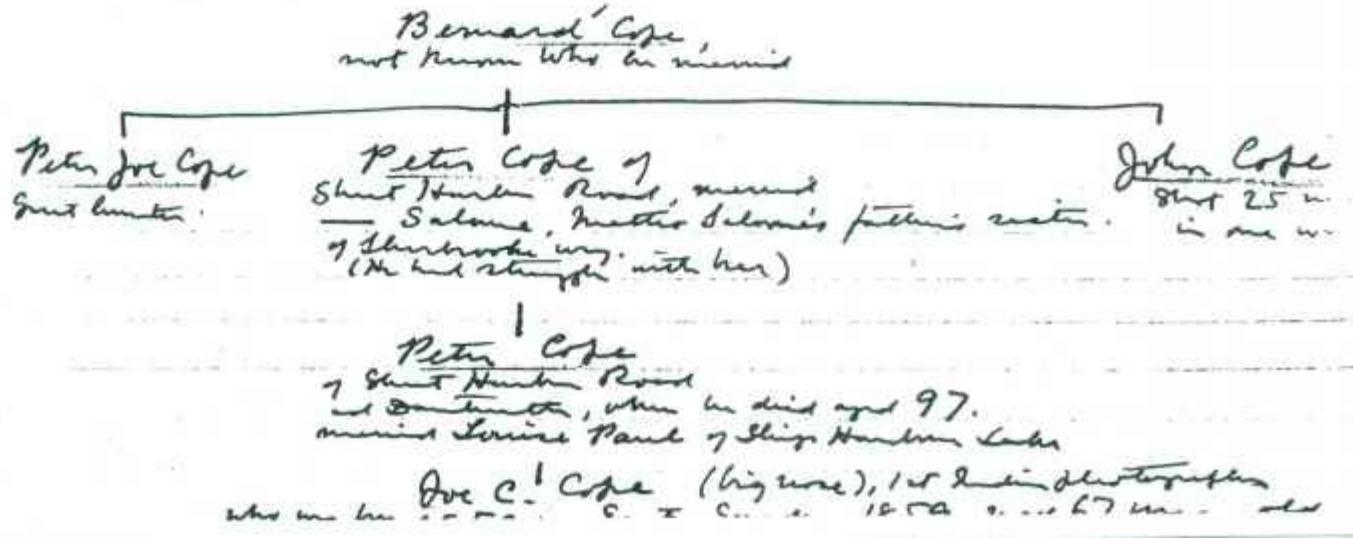 Bernard Cope,
not know who he married
Peter Joe Cope
Great hunter.
Peter Cope of
Sheet Harbor Road, married
— Salome, Matteo Salome's father's sister.
of Sherbrooke way.
(He had struggle with her)
John Cope
Shot 25
in one
Peter Cope
of Sheet Harbor Road
and Dartmouth, where he died aged 97.
married Louise Paul of Ship Harbour Lake
Joe C. Cope (big nose), 1st Indian photographer
who was